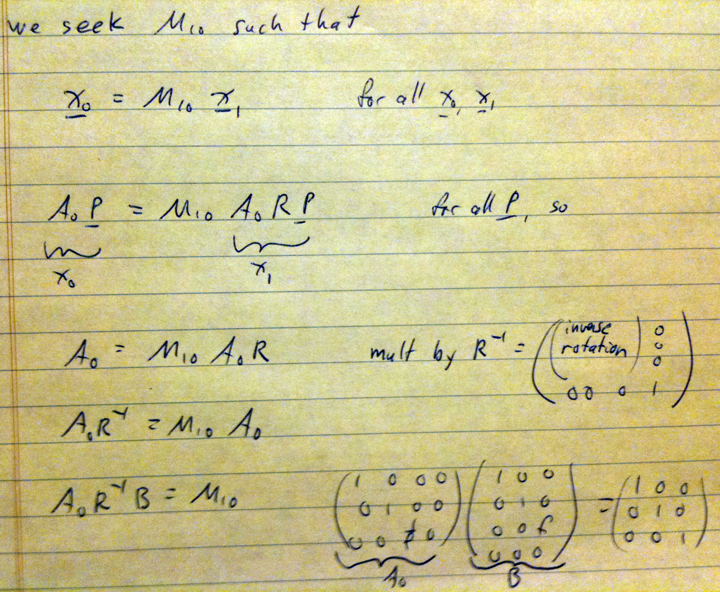 we seek M₁₀ such that
x₀ = M₁₀ x₁ for all x₀, x₁
A₀ P = M₁₀ A₀ R P for all P, so
x₀ x₁
A₀ = M₁₀ A₀ R mult by R⁻¹ = ( ( inverse rotation ) 0 0 0 ; 0 0 0 1 )
A₀ R⁻¹ = M₁₀ A₀
A₀ R⁻¹ B = M₁₀ ( 1 0 0 0 ; 0 1 0 0 ; 0 0 1/f 0 ) ( 1 0 0 ; 0 1 0 ; 0 0 f ; 0 0 0 ) = ( 1 0 0 ; 0 1 0 ; 0 0 1 )
A₀ B